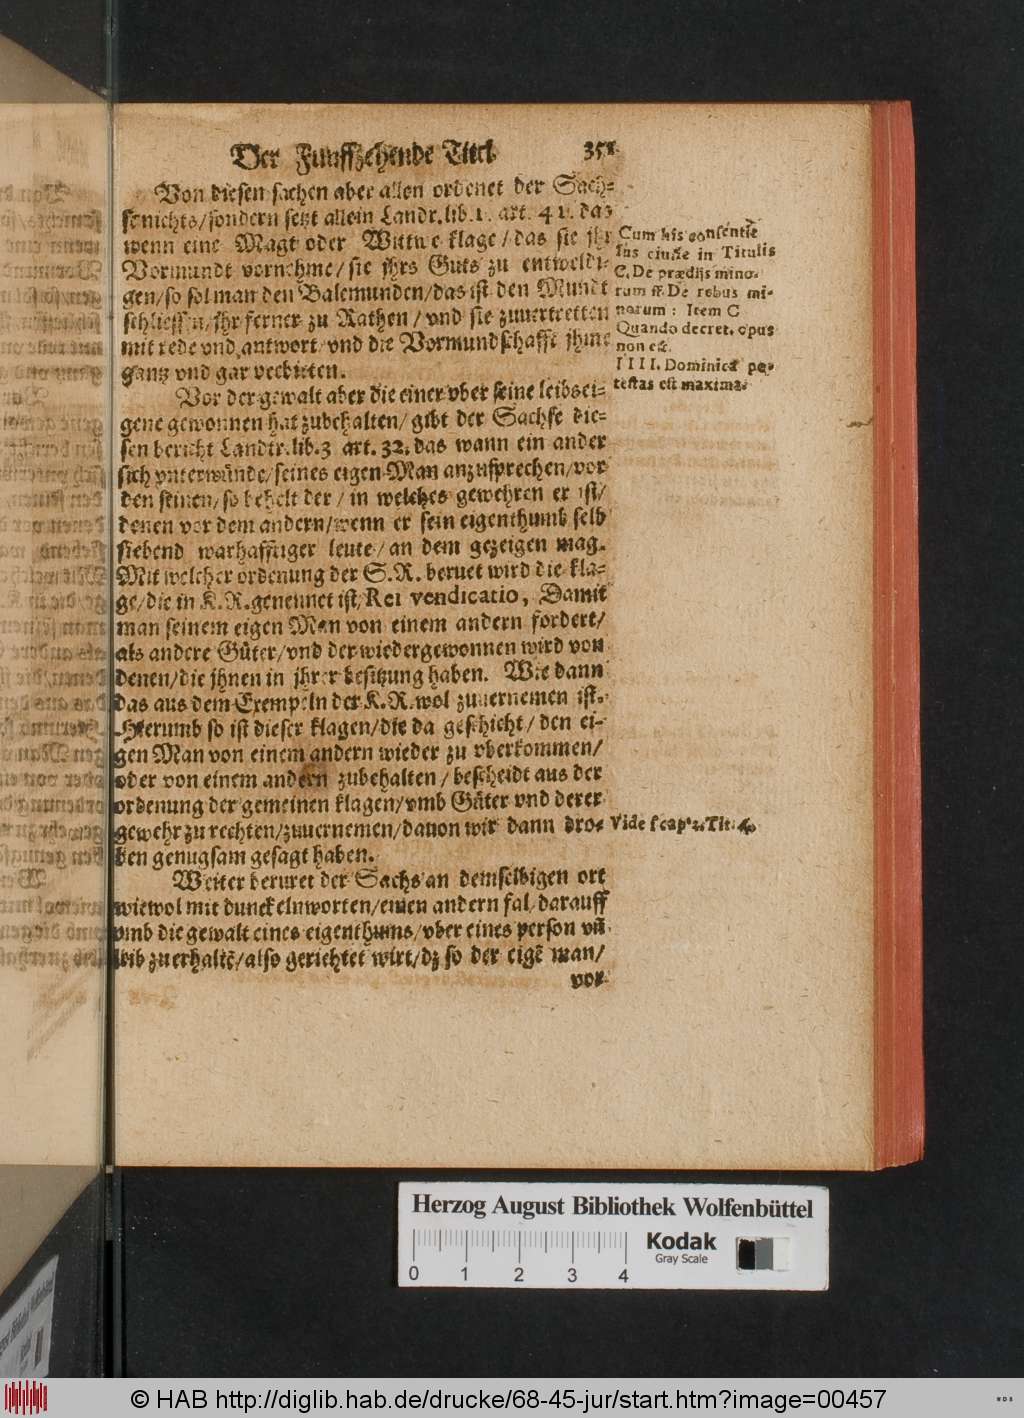 Der Funffzehende Titel 351.
Von diesen sachen aber allen ordenet der Sach-
se nichts/sondern setzt allein Landr.lib.1. art. 41. das
wenn eine Magt oder Wittwe klage/das sie jhr
Vormundt vornehme/sie jhrs Guts zu entweldi-
gen/so sol man den Balemunden/das ist den Mundt
schliessen/jhr ferner zu Rathen/vnd sie zuuertretten
mit rede vnd antwort/vnd die Vormundschafft jhme
gantz vnd gar verbieten.
Cum his consentiūt
Ius ciuile in Titulis
C. De prædijs mino-
rum ff. De rebus mi-
norum: Item C
Quando decret. opus
non est.
IIII. Dominica po-
testas est maxima.
Vor der gewalt aber die einer vber seine leibsei-
gene gewonnen hat zubehalten/gibt der Sachse die-
sen bericht Landtr.lib.3 art. 32. das wann ein ander
sich vnterwünde/seines eigen Man anzusprechen/vor
den seinen/so behelt der/in welches gewehren er ist/
denen vor dem andern/wenn er sein eigenthumb selb
siebend warhafftiger leute/an dem gezeigen mag.
Mit welcher ordenung der S.R. beruet wird die kla-
ge/die in K.R.genennet ist/Rei vendicatio, Damit
man seinem eigen Man von einem andern fordert/
als andere Güter/vnd der wiedergewonnen wird von
denen/die jhnen in jhrer besitzung haben. Wie dann
das aus dem Exempeln der K.R.wol zuuernemen ist.
Hierumb so ist dieser klagen/die da geschicht/den ei-
gen Man von einem andern wieder zu vberkommen/
oder von einem andern zubehalten/bescheidt aus der
ordenung der gemeinen klagen/vmb Güter vnd derer
gewehr zu rechten/zuuernemen/dauon wir dann dro-
ben genugsam gesagt haben.
Vide
Weiter beruret der Sachs an demselbigen ort
wiewol mit dunckeln worten/einen andern fal/darauff
vmb die gewalt eines eigenthums/vber eines person vñ
leib zuerhaltē/also gerichtet wirt/dz so der eigē man/
vor
Herzog August Bibliothek Wolfenbüttel
Kodak
Gray Scale
0 1 2 3 4
© HAB http://diglib.hab.de/drucke/68-45-jur/start.htm?image=00457